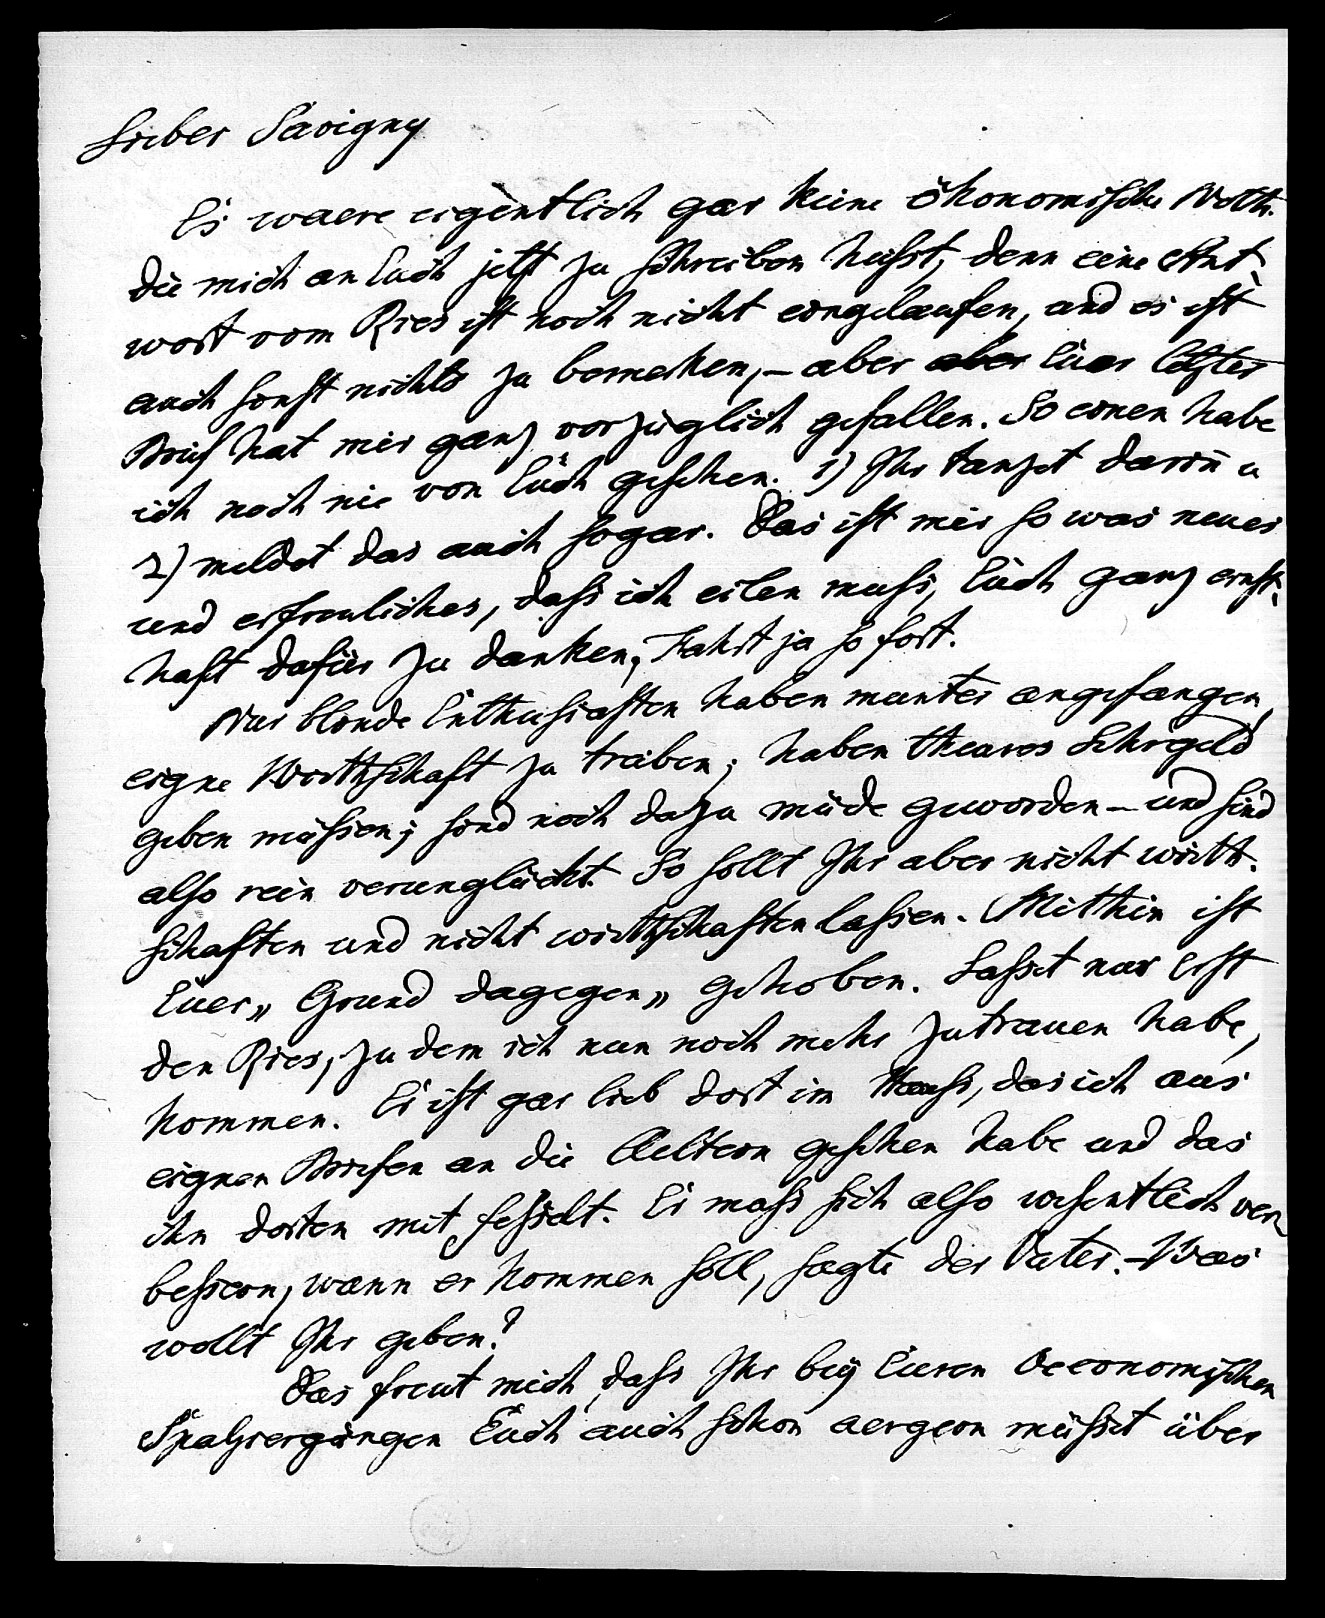 Lieber Savigny
Es waere eigentlich gar keine ökonomische Noth,
die mich an Euch jetzt zu schreiben heisst, denn eine Ant-
wort vom Ries ist noch nicht eingelaufen, und es ist
auch sonst nichts zu bemerken, – aber aber Euer letzter
Brief hat mir ganz vorzüglich gefallen. So einen habe
ich noch nie von Euch gesehen. 1) Ihr tanzet darin u
2) meldet das auch sogar. Das ist mir so was neues
und erfreuliches, dass ich eilen muss, Euch ganz ernst-
haft dafür zu danken, Fahrt ja so fort.
Nur blonde Enthusiasten haben munter angefangen,
eigne Wirthschaft zu treiben; haben theures Lehrgeld
geben müssen; sind noch dazu müde geworden – und sind
also rein verunglückt. So sollt Ihr aber nicht wirth-
schaften und nicht wirthschaften lassen. Mithin ist
Euer „Grund dagegen„ gehoben. Lasset nur erst
den Ries, zu dem ich nun noch mehr Zutrauen habe,
kommen. Er ist gar lieb dort im Hauss, das ich aus
eignen Briefen an die Aeltern gesehen habe und das
ihn dorten mit fesselt. Er muss sich also wesentlich ver-
bessern, wann er kommen soll, sagte der Vater. – Was
wollt Ihr geben?
Das freut mich, dass Ihr bey Euren Oeconomischen
Spatziergängen Euch auch schon aergern müsset über